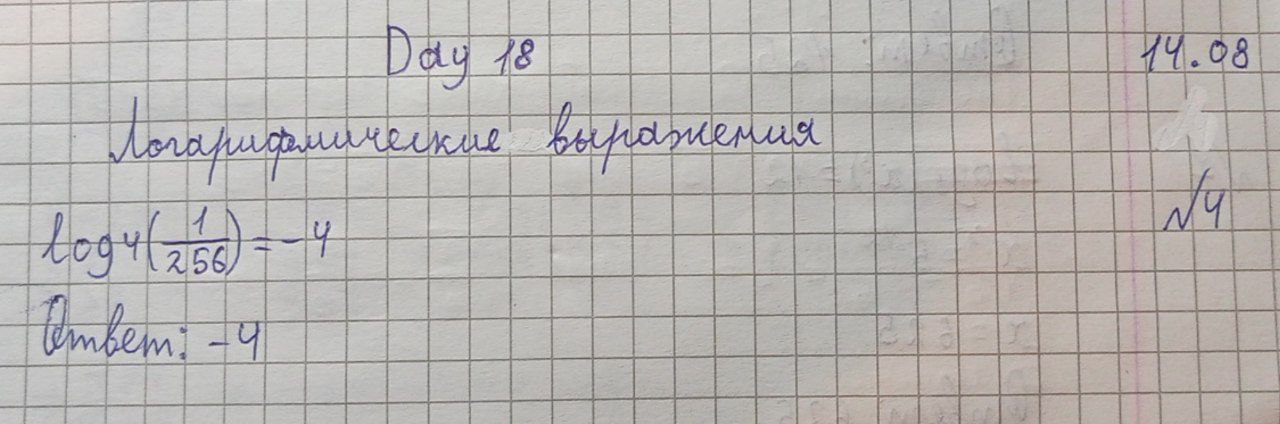 Day 18
14.08
Логарифмические выражения
№4
log4(1/256)=-4
Ответ: -4